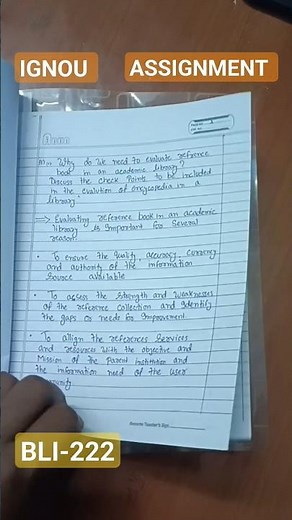 IGNOU ASSIGNMENT
Why do we need to evaluate refrence
book in an academic library?
Discuss the check points to be included
in the evalution of encycopedia in a
library
⇒ Evaluating reference book in an academic
library is important for several
reason.
• To ensure the quality, accuracy, currency
and authority of the information
source available
• To assess the strength and weaknesses
of the reference collection and identify
the gaps or needs for improvement.
• To allign the references services
and resources with the objective and
mission of the parent institution and
the information need of the user
BLI-222